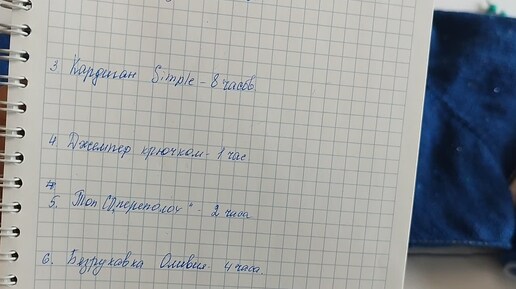 3. Кардиган Simple - 8 часов
4. Джемпер крючком - 1 час
5. Топ - 2 часа
6. Безрукавка Оливия - 4 часа